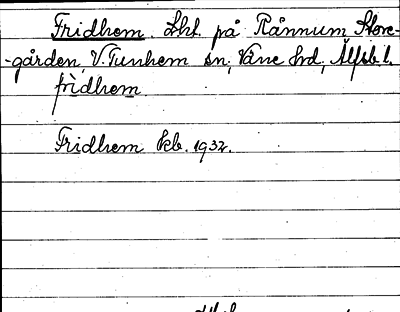 Fridhem. Lht. på Rånnum Store-
-gården V. Tunhem sn, Väne hd, Älfsb l.
frìdhem
Fridhem kb. 1932.